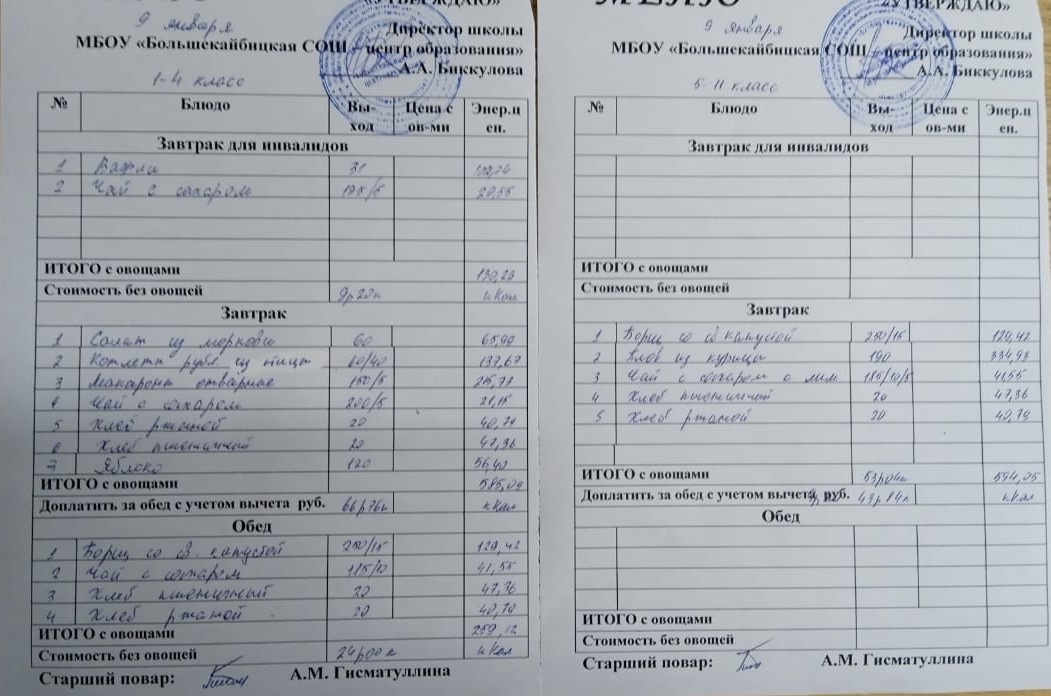 МЕНЮ
«УТВЕРЖДАЮ»
9 января
Директор школы
МБОУ «Большекайбицкая СОШ – центр образования»
А.А. Биккулова
1-4 класс
№ Блюдо Вы-ход Цена с ов-ми Энер.цен.
Завтрак для инвалидов
1 Вафли 31
2 Чай с сахаром 195/5 20,55
ИТОГО с овощами 130,29
Стоимость без овощей 9р20к кКал
Завтрак
1 Салат из моркови 60
2 Котлеты рубл. из птицы 60/40 137,67
3 Макароны отварные 150/5
4 Чай с сахаром 200/5 21,15
5 Хлеб ржаной 20 40,79
6 Хлеб пшеничный 20 47,36
7 Яблоко 120 56,40
ИТОГО с овощами 585,09
Доплатить за обед с учетом вычета руб. 66р76к кКал
Обед
1 Борщ со св. капустой 250/15 129,42
2 Чай с сахаром 185/10 41,55
3 Хлеб пшеничный 20 47,36
4 Хлеб ржаной 20 40,79
ИТОГО с овощами 259,12
Стоимость без овощей 24р00к кКал
Старший повар: А.М. Гисматуллина
МЕНЮ
«УТВЕРЖДАЮ»
9 января
Директор школы
МБОУ «Большекайбицкая СОШ – центр образования»
А.А. Биккулова
5-11 класс
№ Блюдо Вы-ход Цена с ов-ми Энер.цен.
Завтрак для инвалидов
ИТОГО с овощами
Стоимость без овощей
Завтрак
1 Борщ со св капустой 250/15 129,42
2 Плов из курицы 190 334,93
3 Чай с сахаром с лим 185/10/5 41,55
4 Хлеб пшеничный 20 47,36
5 Хлеб ржаной 20 40,79
ИТОГО с овощами 53р04к 594,05
Доплатить за обед с учетом вычета руб. 43р84к кКал
Обед
ИТОГО с овощами
Стоимость без овощей
Старший повар: А.М. Гисматуллина